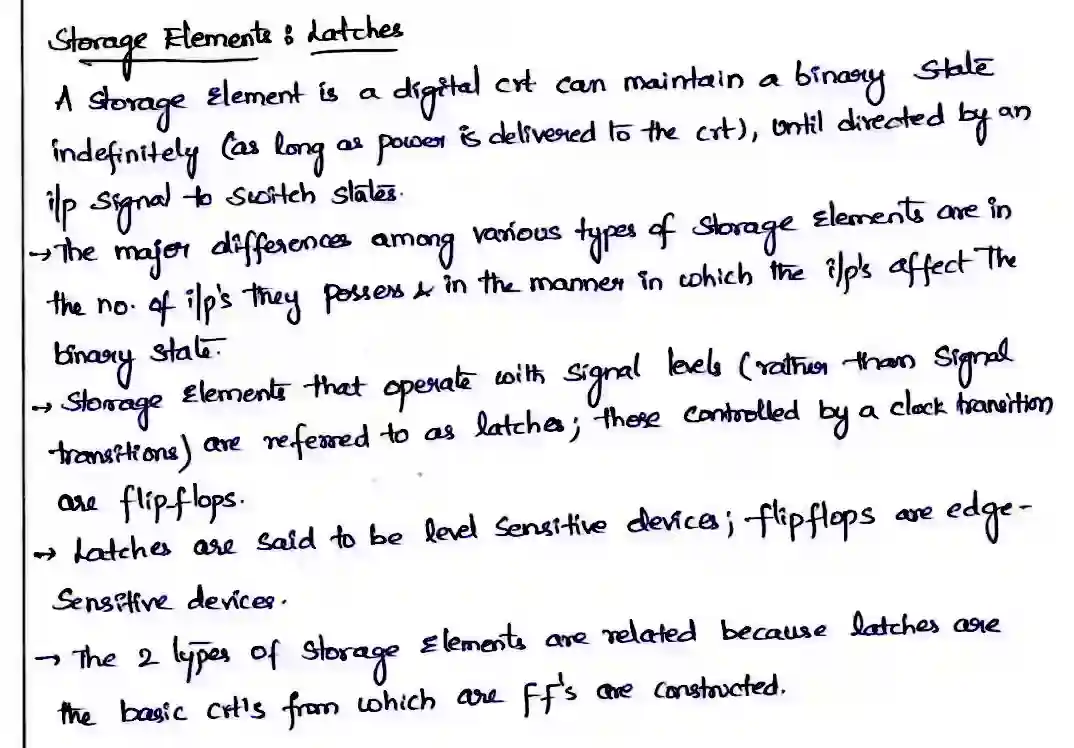 Storage Elements : Latches
A storage Element is a digital crt can maintain a binary state
indefinitely (as long as power is delivered to the crt), until directed by an
i/p signal to switch states.
→ The major differences among various types of storage Elements are in
the no. of i/p's they possess & in the manner in which the i/p's affect The
binary state.
→ Storage Elements that operate with signal levels (rather than signal
transitions) are referred to as latches; those controlled by a clock transition
are flip-flops.
→ Latches are said to be level sensitive devices; flipflops are edge-
sensitive devices.
→ The 2 types of storage Elements are related because latches are
the basic crt's from which are ff's are constructed.